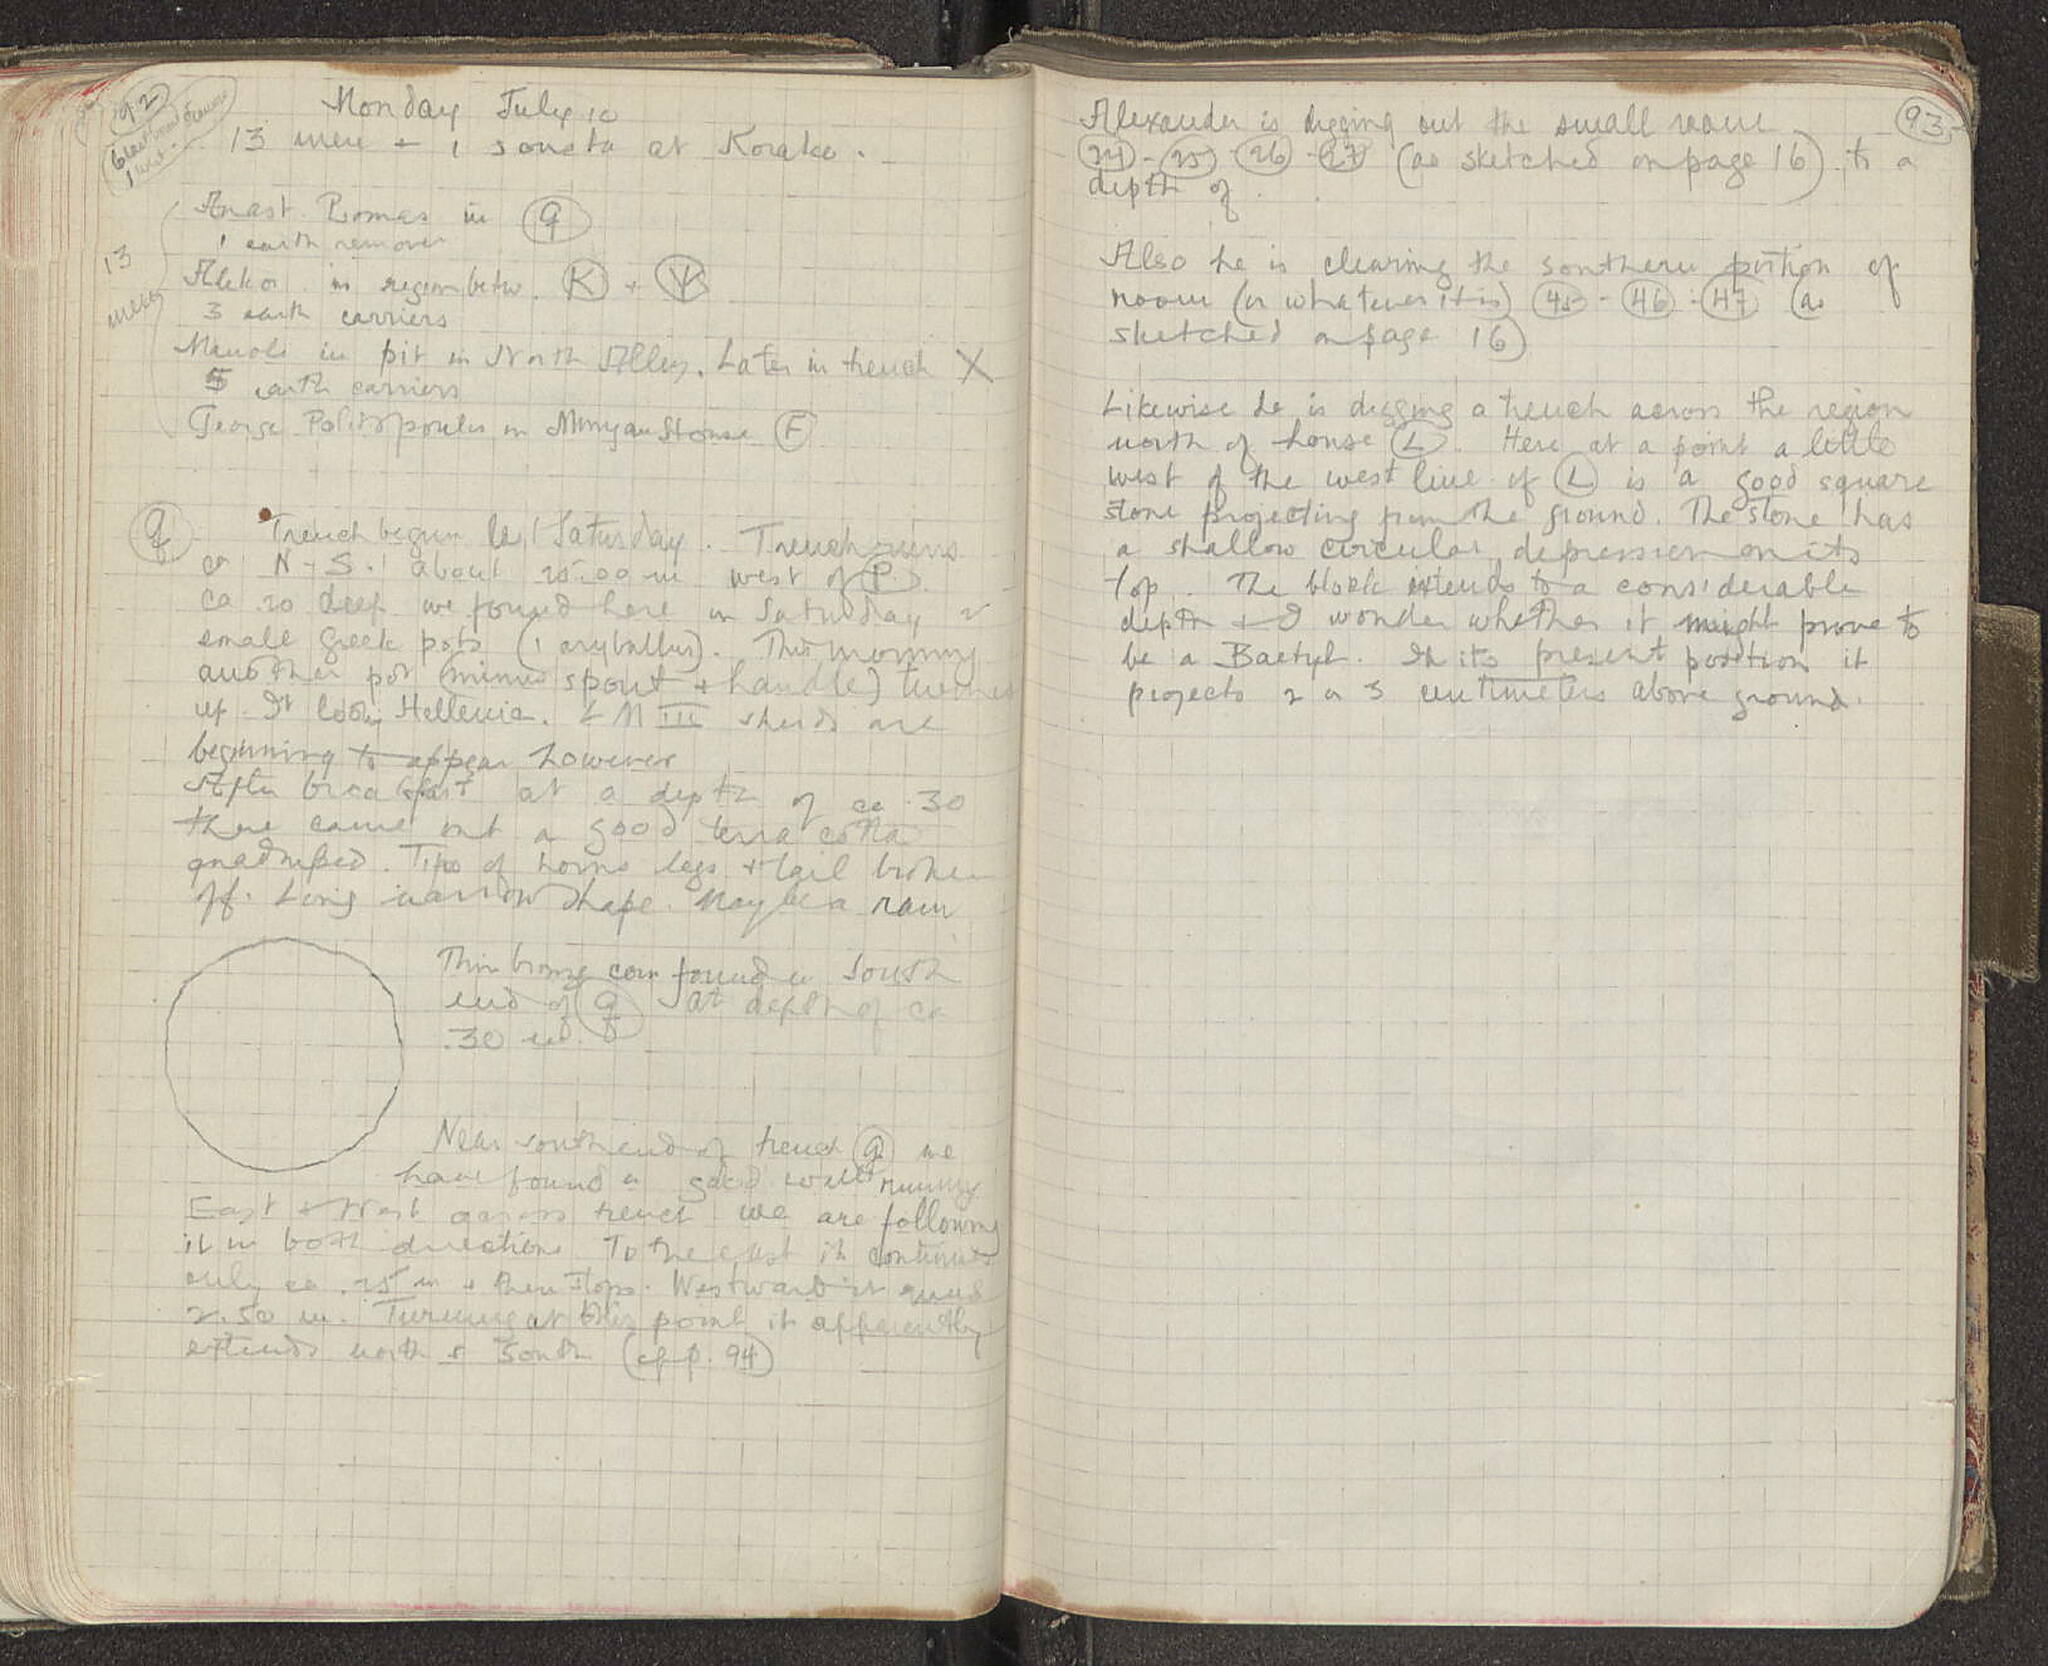 92
Monday July 10
13 men + 1 sousta at Korako.
Anast. Romas in q
1 earth remover
Aleko in region betw. K + Ψ
3 earth carriers
Manoli in pit in North Alley. Later in trench X
5 earth carriers
George Politopoulos in Minyan House F
13
men
q Trench begun Saturday. Trench runs
ca N-S. about 25.00 m west of P.
ca 20 deep we found here on Saturday 2
small Greek pots (1 aryballus). This morning
another pot (minus spout + handle) turned
up. It looks Hellenic. LM III sherds are
beginning to appear however
After breakfast at a depth of ca .30
there came out a good terra cotta
quadruped. Tips of horns legs + tail broken
off. Long narrow shape. May be a ram
Thin bronze coin found in South
end of q at depth of ca
.30 m.
Near south end of trench q we
have found a good wall running
East + West across trench we are following
it in both directions. To the east it continues
only ca .25 m + then stops. Westward it runs
2.50 m. Turning at this point it apparently
extends north & South (cf p. 94)
93
Alexander is digging out the small room
24 - 25 - 26 - 27 (as sketched on page 16) to a
depth of .
Also he is clearing the southern portion of
room (or whatever it is) 45 - 46 - 47 (as
sketched on page 16)
Likewise he is digging a trench across the region
north of house L. Here at a point a little
west of the west line of L is a good square
stone projecting from the ground. The stone has
a shallow circular depression on its
top. The block extends to a considerable
depth + I wonder whether it might prove to
be a Baetyl. In its present position it
projects 2 or 3 centimeters above ground.